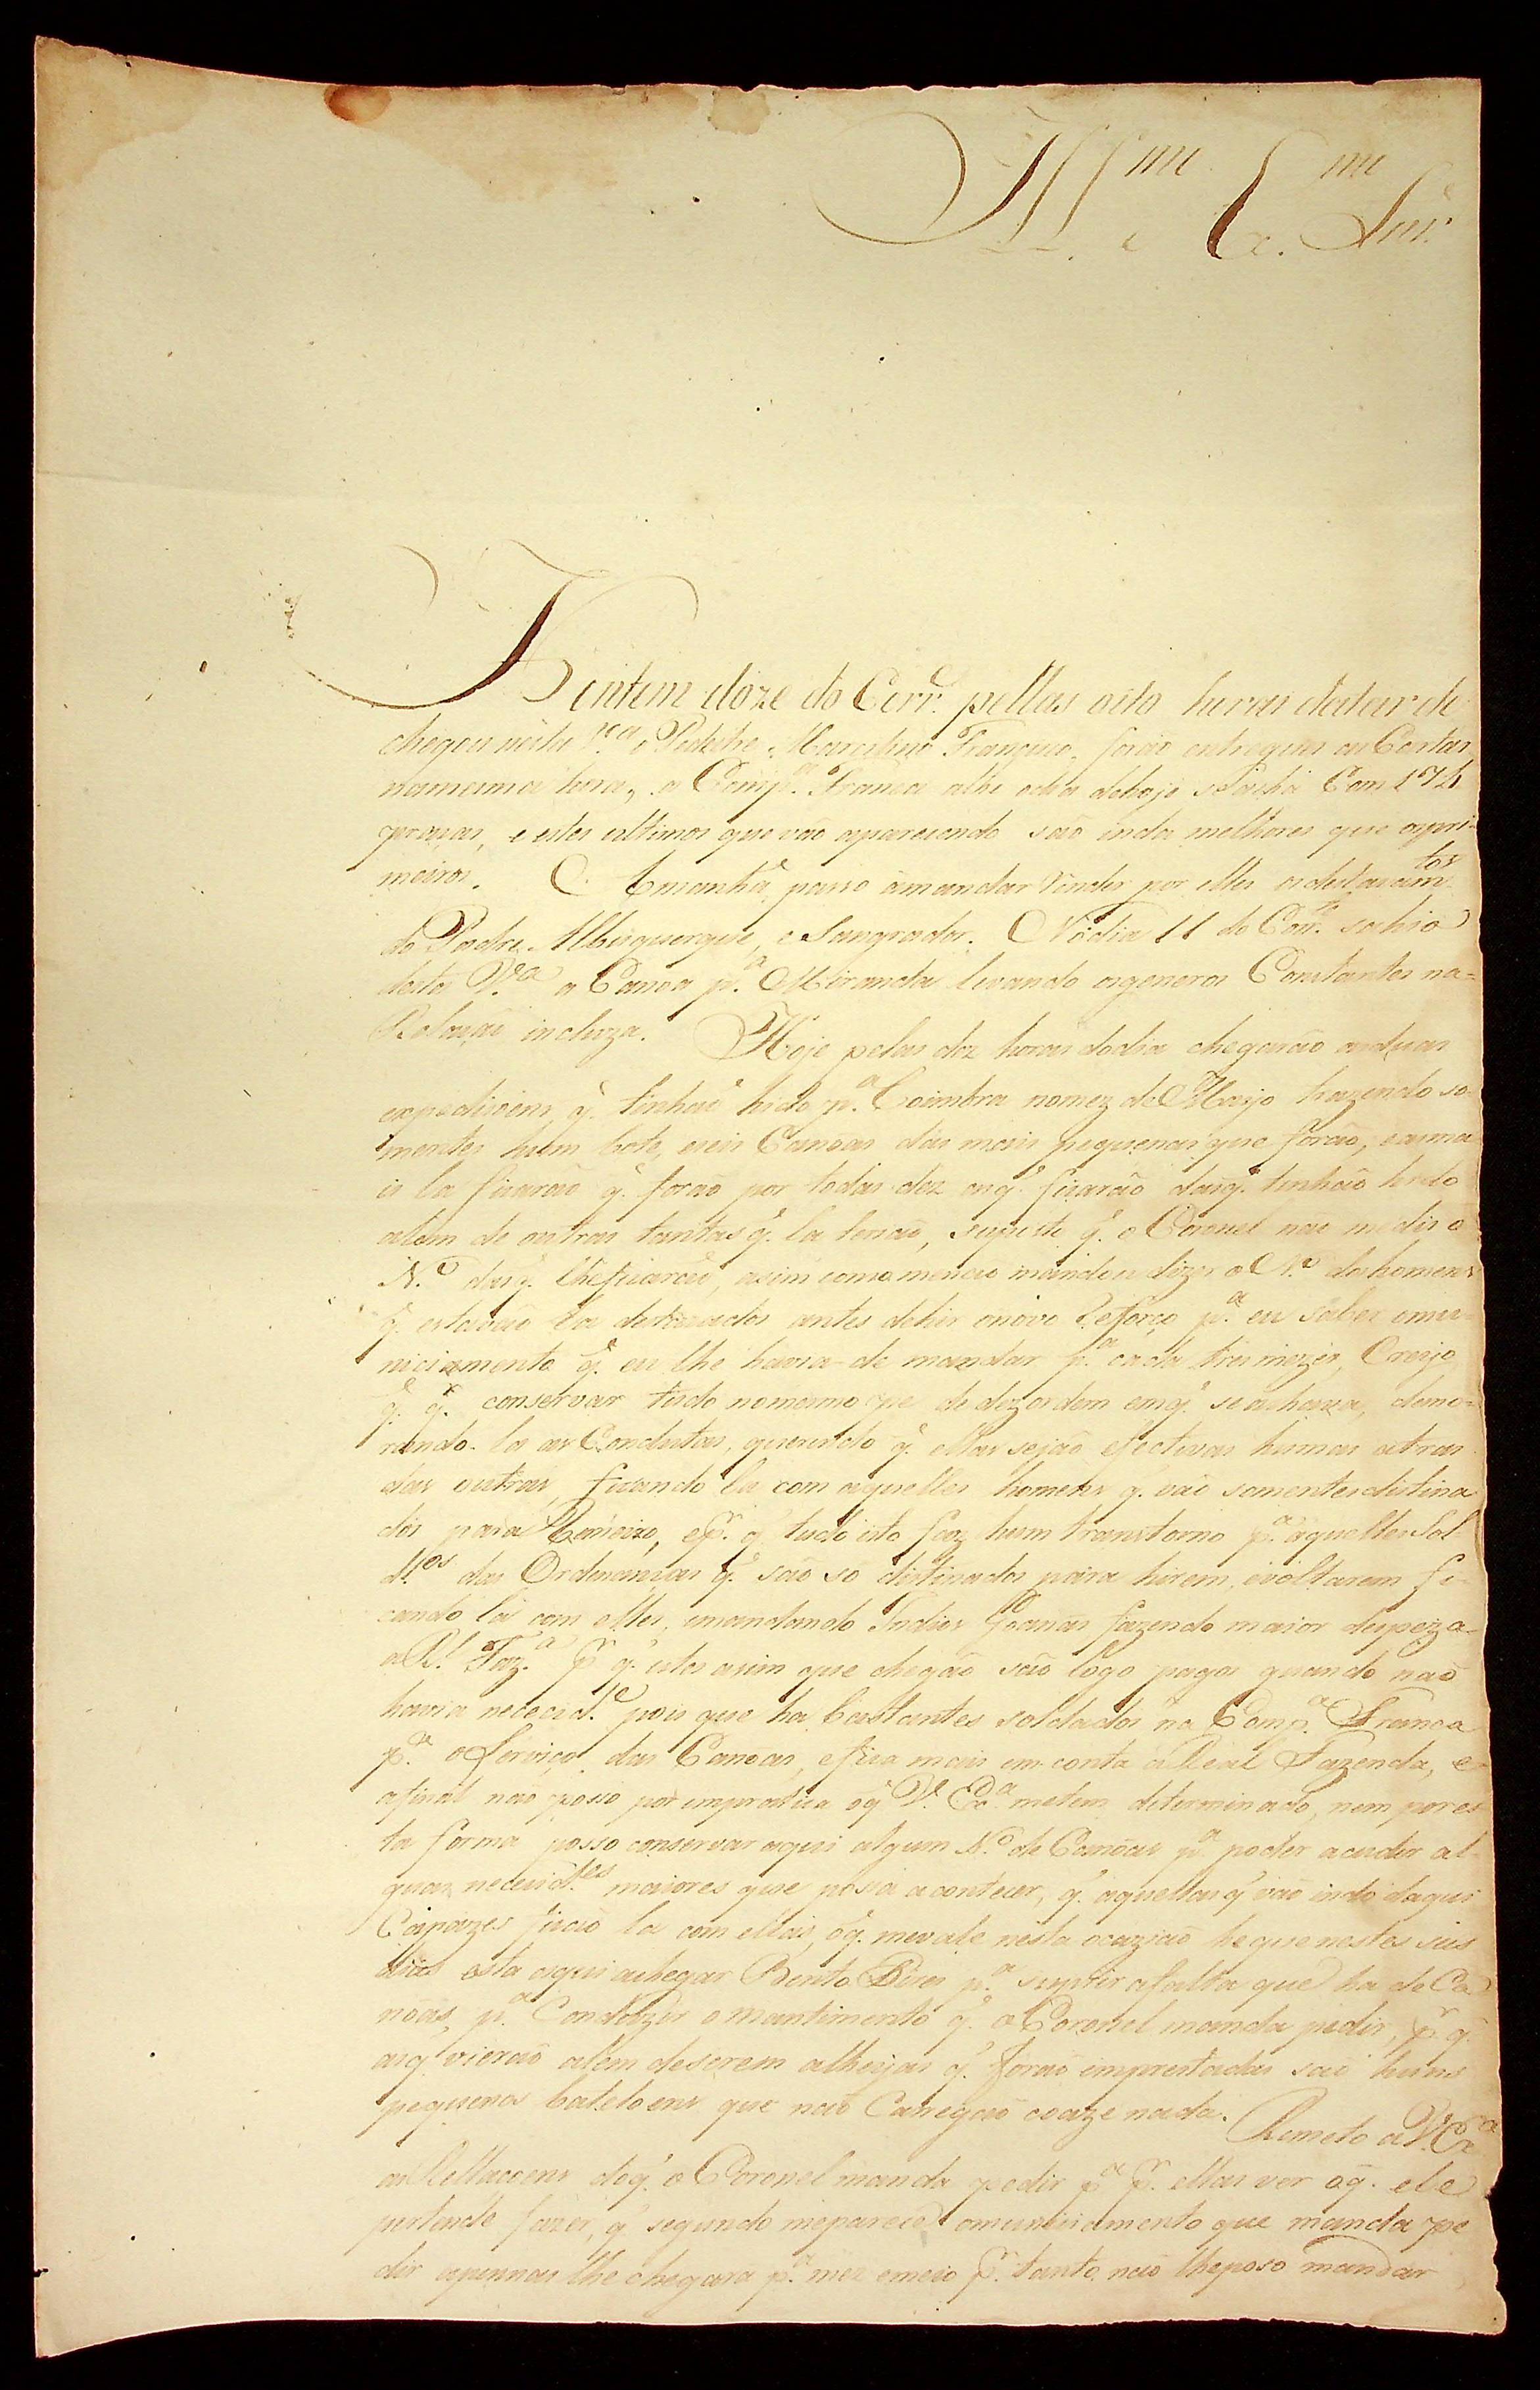 Ill.mo e Ex.mo Snr.
Hontem doze do Corr.e pellas oito horas datarde
chegou nesta V.a o Pedestre Marcelino Francisco, forão entregues as Cartas
namesma hora, a Comp.a Franca athe odia dehoje se acha Com 174
praças, e estes ultimos que vão aparecendo são inda melhores que ospri-
meiros. Amanhã passo àmandar render por elles osdestacam.tos
do Padre Albuquerque, e Sangrador. Nodia 11 do Corr.e sahio
desta V.a a Canoa p.a Miranda levando osgeneros Constantes na=
Relação incluza. Hoje pelas dez horas dodia chegarão asduas
expediçoens q̃. tinhão hido p.a Coimbra nomez de Mayo trazendo so-
mentes hum bote, eseis Canoas das mais pequenas que forão, easma
is la ficarão q̃. forão por todas dez asq̃. ficarão dasq̃. tinhão hido
alem de outras tantas q̃. la terião, suposto q̃. o Coronel não me diz o
N.o dasq̃. lheficarão, asim como menão mandou dizer o N.o dehomens
q̃. estavão la destacados antes dehir onovo Reforço p.a eu saber omu-
niciamento q̃. eu lhe havia de mandar p.a cada tres mezes, Creyo
q̃. q.r conservar tudo nomesmo pe de dezordem emq̃. se achava, demo-
rando la as Conductas, querendo q̃. ellas sejão efectivas humas atras
das outras, ficando la com aquelles homens q̃. vão somentes distina
dos para Carreira, ep.r q̃ tudo isto faz hum transtorno p.a aquelles Sol-
d.os das Ordenanças q̃. são so distinados para hirem, evoltarem fi-
cando lá com elles, emandando Indios Goanas fazendo maior despeza
a R.l Faz.a p.r q̃. estes asim que chegão são logo pagos quando não
havia nececid.e pois que ha bastantes soldados na Comp.a Franca
p.a o Serviço das Canoas, efica mais em conta a Real Fazenda, e
afinal não posso por empratica oq̃ V. Ex.a metem determinado, nem pores-
ta forma posso conservar aqui algum N.o de Canoas p.a poder acudir al-
guas necessid.es maiores que possa acontecer, q̃. aquellas q̃ vão indo daqui
Capazes ficão la com ellas, oq̃. mevale nesta ocazião he que nestes seis
dias esta aqui achegar Bento Pires p.a suprir afalta que ha de Ca
noas, p.a Conduzir o mantimento q̃. o Coronel manda pedir, p.r q̃.
asq̃ vierão alem deserem alheyas q̃. forão imprestadas são huns
pequenos bateloens que não Carregão coaze nada. Remeto a V. Ex.a
as Rellaçoens doq̃. o Coronel manda pedir p.a p.r ellas ver oq̃. ele
pertende fazer, q̃ segundo meparece omuniciamento que manda pe
dir apennas lhe chegara p.a mez emeio p.r tanto não lheposo mandar